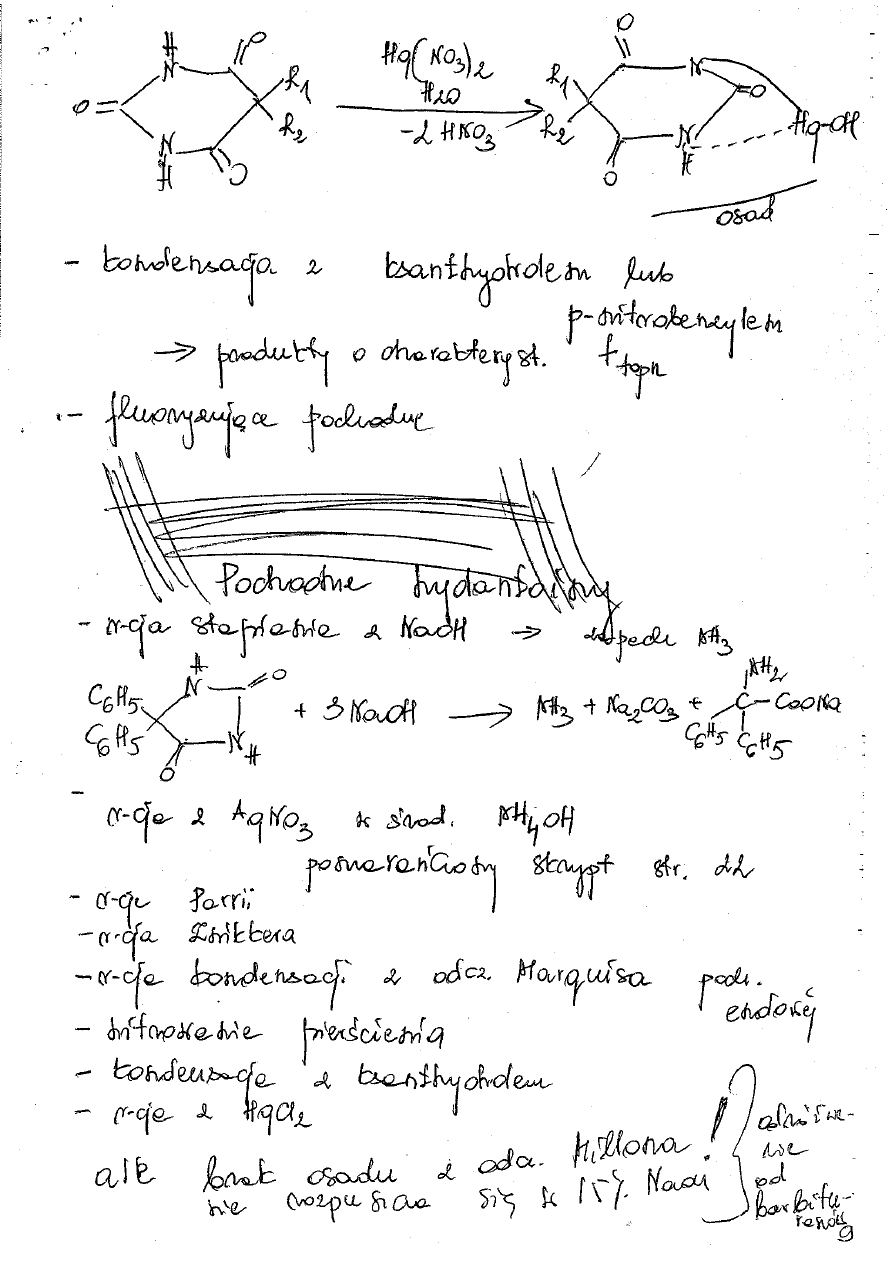 H N O R1 R2 O= N H O
Hg(NO3)2
H2O
-2 HNO3
R1 R2 O N O N H O Hg-OH
osad
- kondensacja z ksanthydrolem lub
p-nitrobenzylem
→ produkty o charakteryst. t topn
- fluoryzujące pochodne
Pochodne hydantoiny
- r-cja stapianie z NaOH → NH3
C6H5 C6H5 H N O N H O + 3NaOH → NH3 + Na2CO3 + NH2 C-COONa C6H5 C6H5
-
r-cja z AgNO3 w środ. NH4OH
pomarańczowy skrypt str. 22
- r-cja Parrii
- r-cja Zwikkera
- r-cja kondensacji z odcz. Marquisa poch.
- nitrowanie pierścienia
- kondensacja z ksanthydrolem
- r-cja z HgCl2
ale brak osadu z odcz. Millona !
nie rozpuszcza się w 15% NaOH
odróżnie-
nie
od
barbitu-
ranów
9